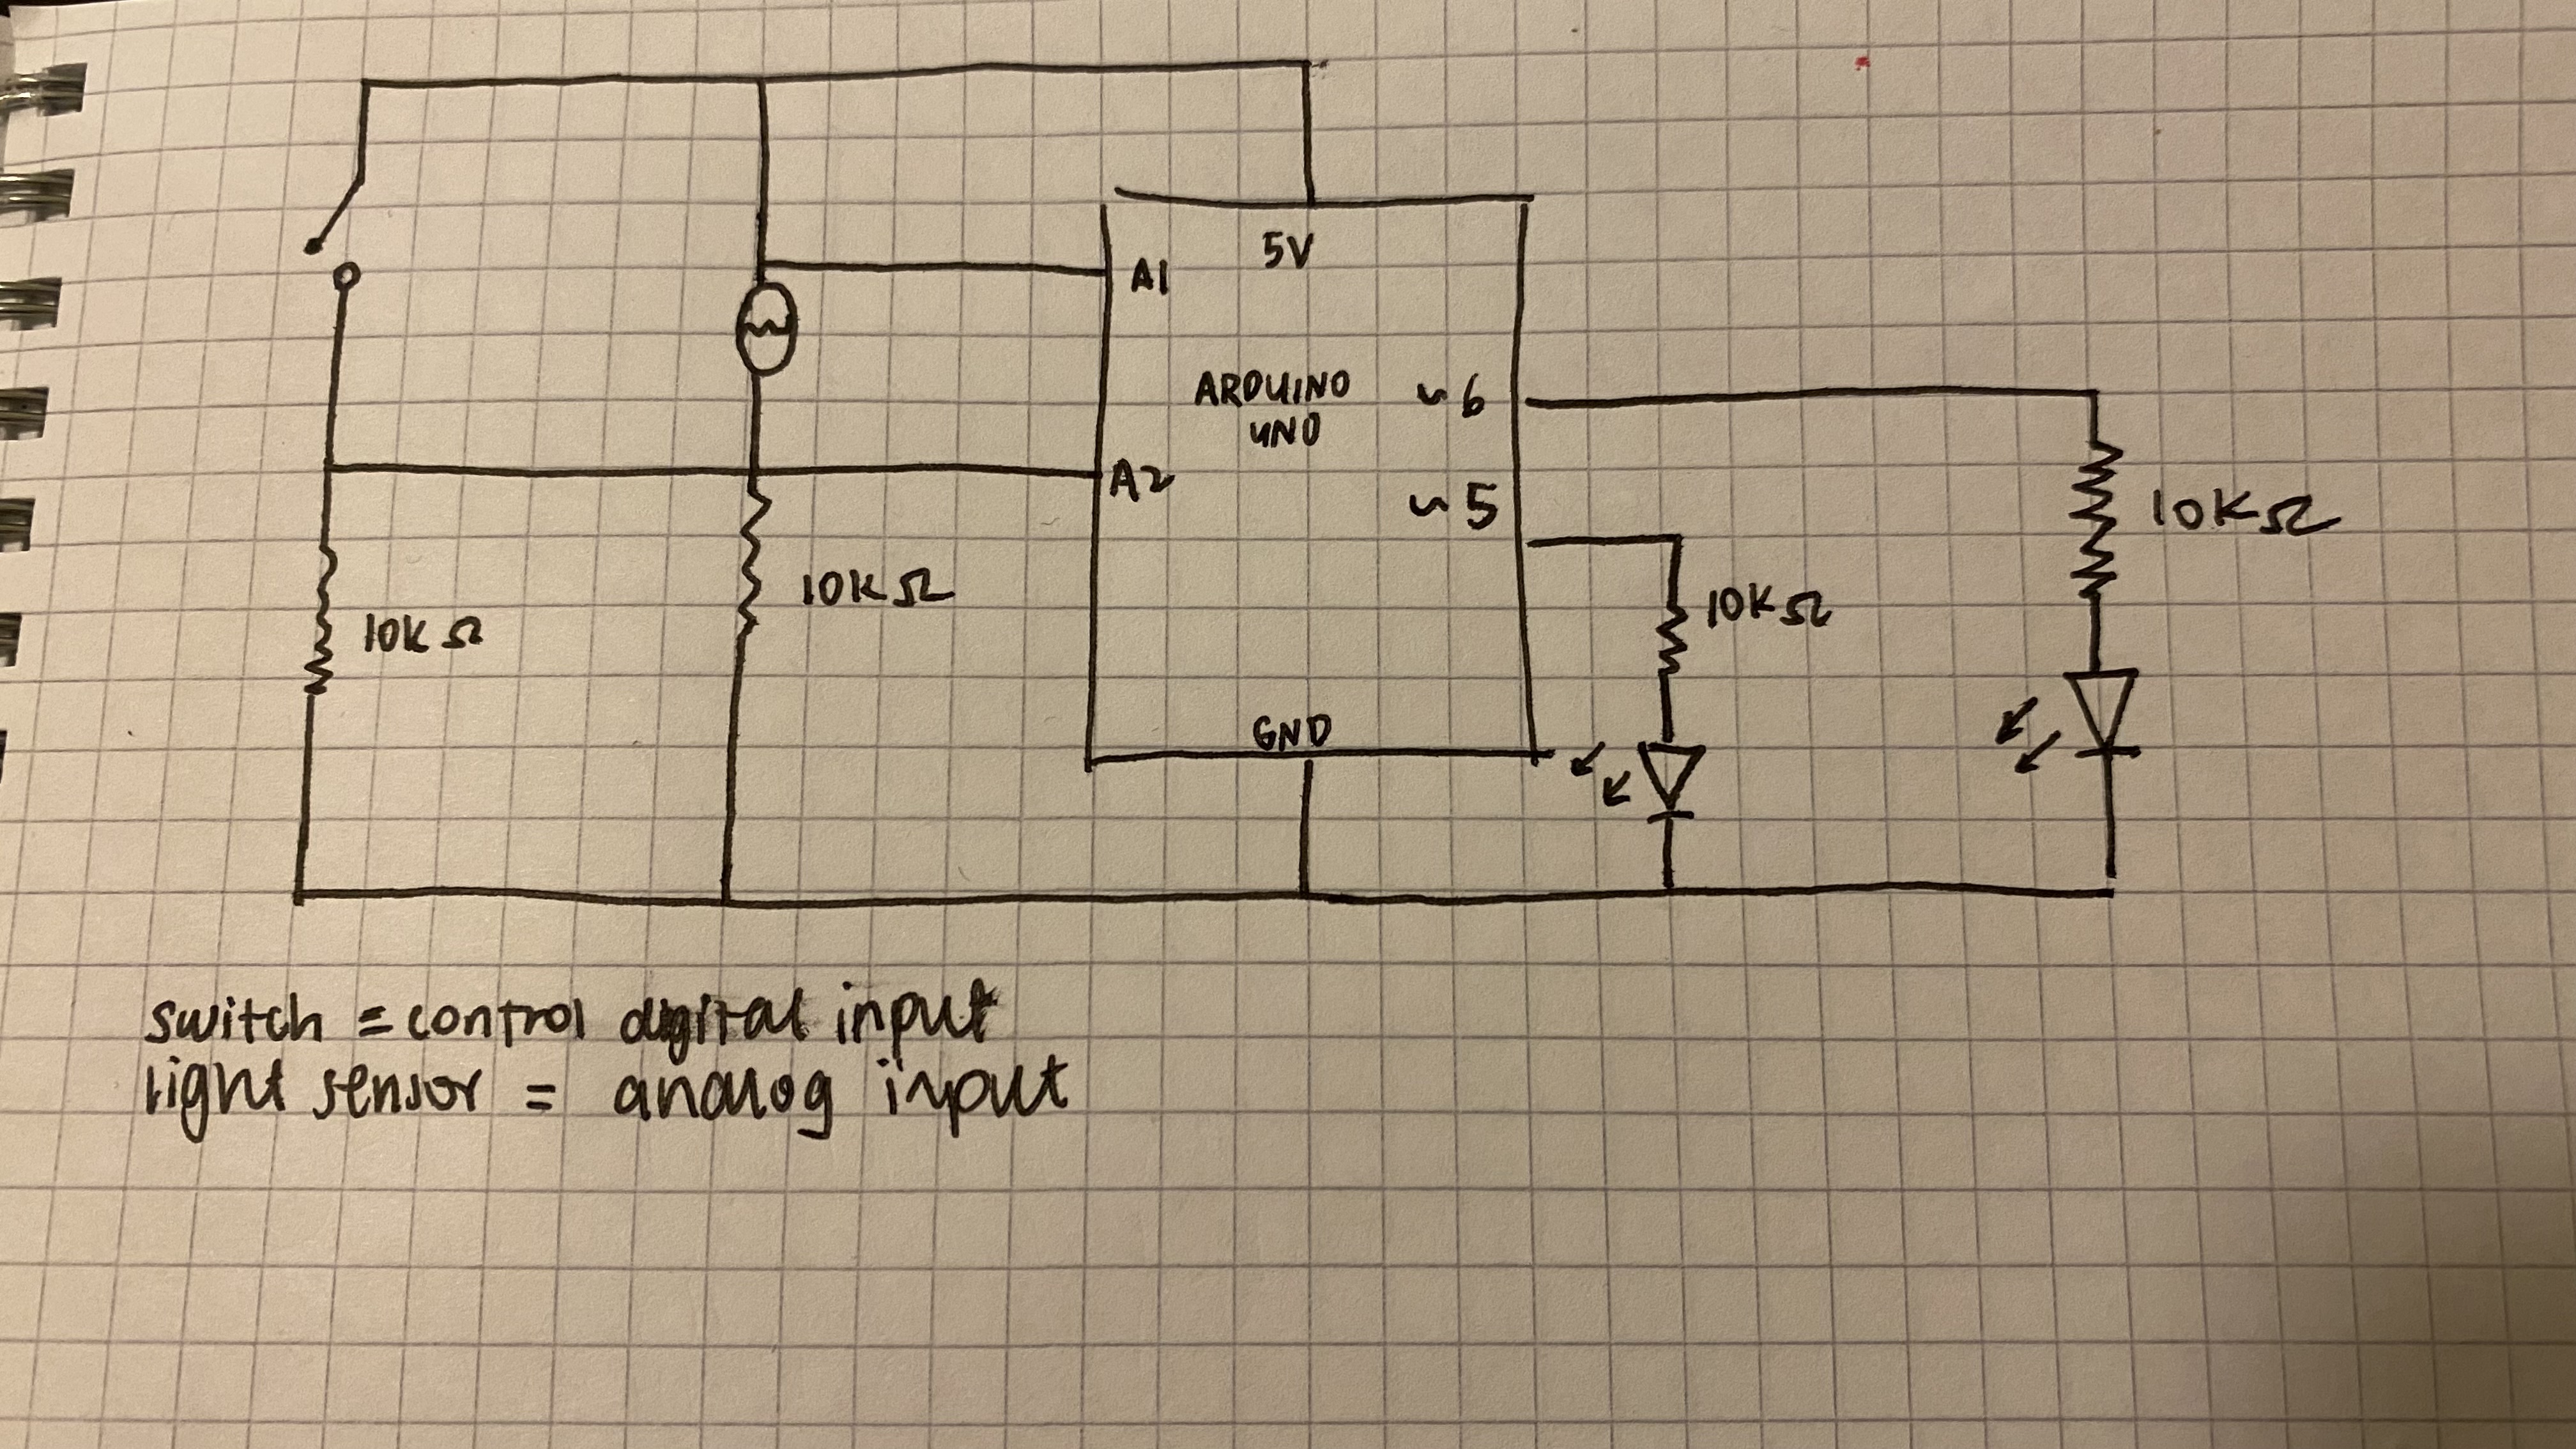 5V
A1
ARDUINO
UNO
~6
A2
~5
10KΩ
10KΩ
10KΩ
10KΩ
GND
switch = control digital input
light sensor = analog input